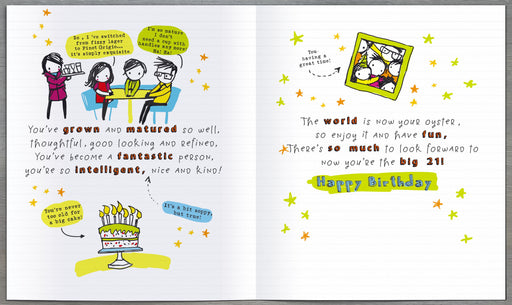 So, I've switched
from fizzy lager
to Pinot Grigio...
it's simply exquisite.
I'm so mature
I don't
need a cup with
handles any more!
Ha! Ha!
You've grown and matured so well,
thoughtful, good looking and refined.
You've become a fantastic person,
you're so intelligent, nice and kind!
You're never
too old for
a big cake!
It's a bit soppy,
but true!
You
having a
great time!
The world is now your oyster,
so enjoy it and have fun,
There's so much to look forward to
now you're the big 21!
Happy Birthday